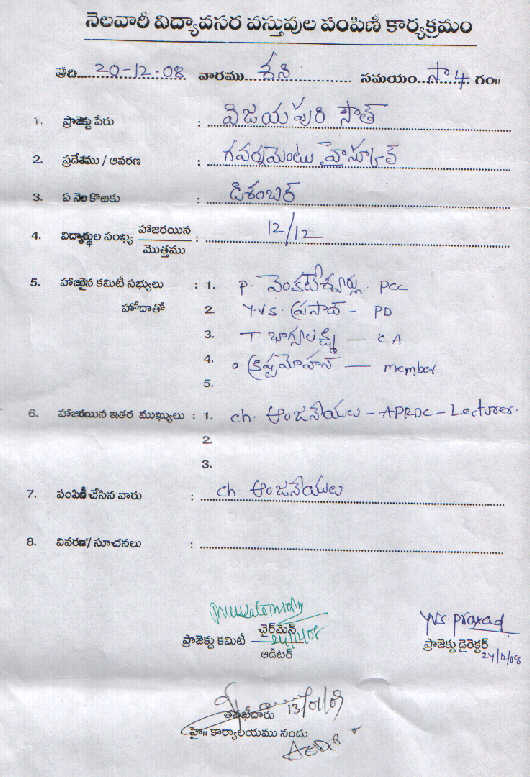 నెలవారీ విద్యావసర వస్తువుల పంపిణీ కార్యక్రమం
తేది 20-12-08 వారము శని సమయం సా 4 గం॥
1. ప్రాజెక్టు పేరు : విజయపురి సౌత్
2. ప్రదేశము / ఆవరణ : గవర్నమెంటు హైస్కూల్
3. ఏ నెల కొఱకు : డిశంబర్
4. విద్యార్థుల సంఖ్య హాజరయిన / మొత్తము : 12/12
5. హాజరైన కమిటీ సభ్యులు : 1. P. వెంకటేశ్వర్లు PCC
హోదాతో 2. Y.V.S. ప్రసాద్ - PD
3. T భాగ్యలక్ష్మి - C.A
4. క్రిష్ణమోహన్ - member
5.
6. హాజరయిన ఇతర ముఖ్యులు : 1. ch. ఆంజనేయులు - APRDC - Lecturer
2.
3.
7. పంపిణీ చేసిన వారు : ch ఆంజనేయులు
8. వివరణ/ సూచనలు :
చైర్మన్
ప్రాజెక్టు కమిటీ
ఆడిటర్
yvs prasad
ప్రాజెక్టు డైరెక్టర్
24/12/08
13/01/09
హై॥ కార్యాలయము నందు